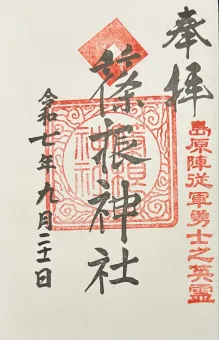 奉拝
島原陣従軍勇士之英霊
篠振神社
令和七年九月二十日